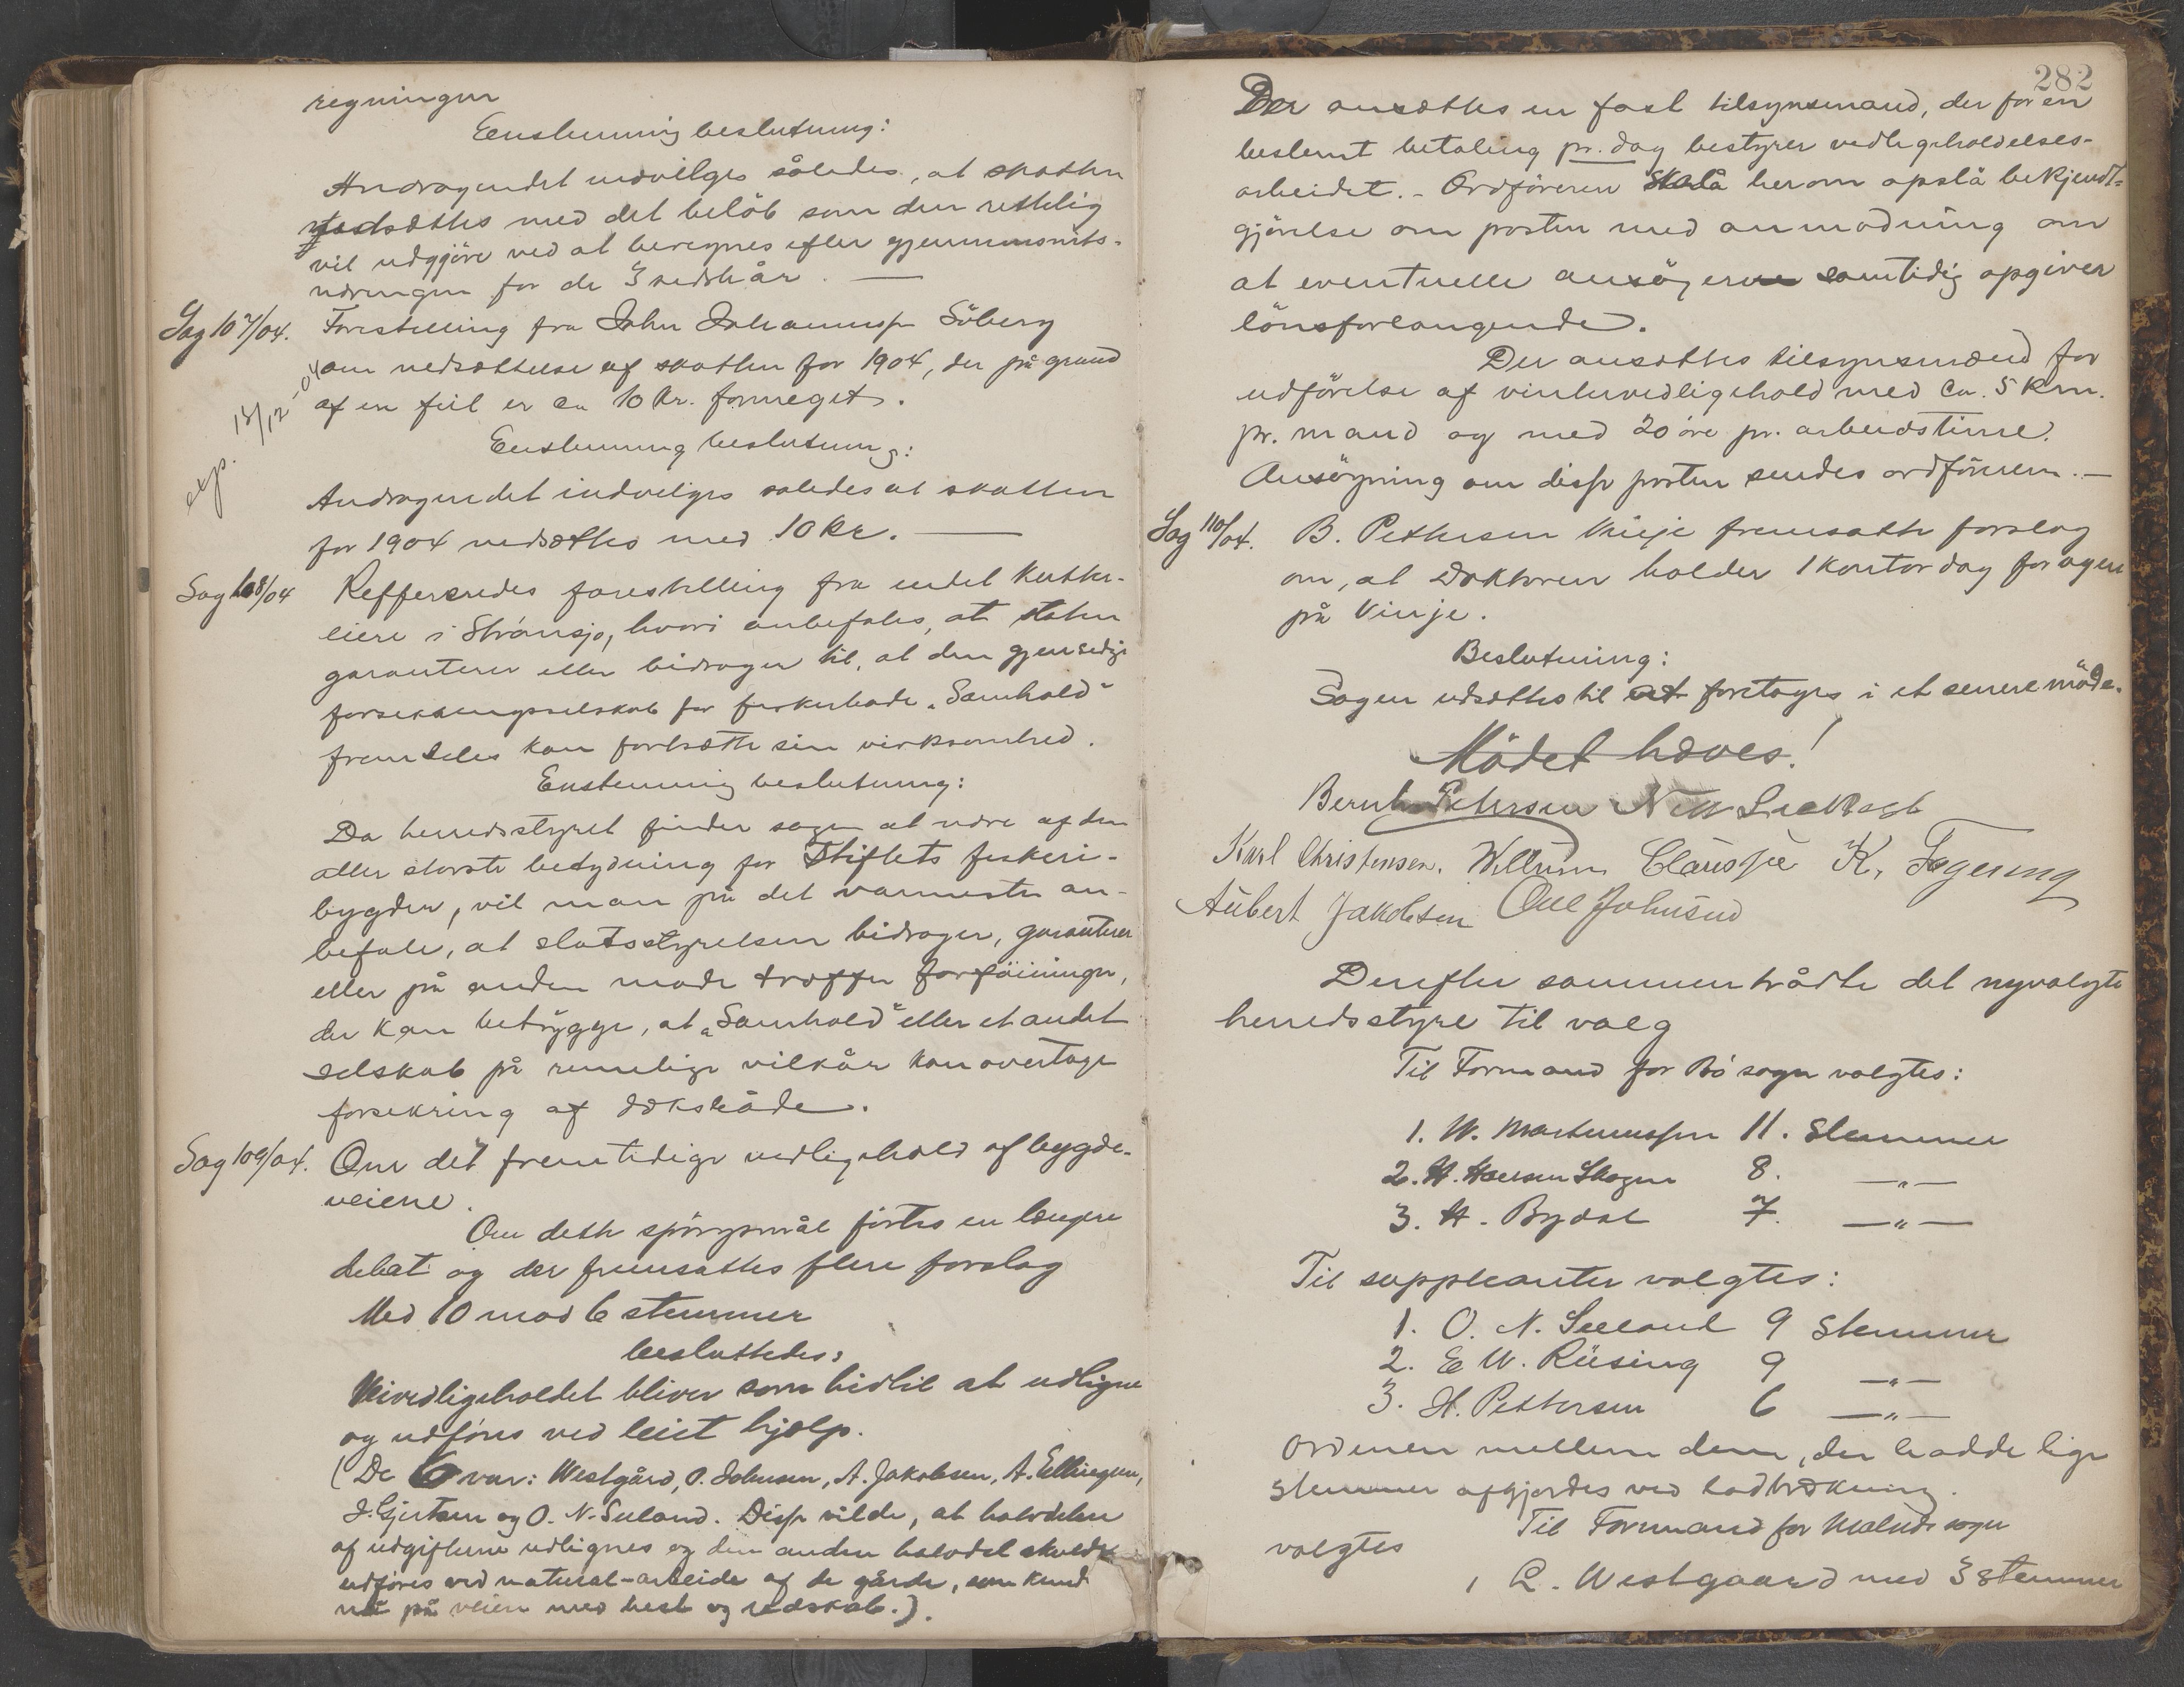 regningen
Eenstemmig beslutning:
Andragendet indvilges således, at skatten
fastsættes med det beløb som den rettelig
vil udgjøre ved at beregnes efter gjennemsnits-
næringen for de 3 sidste år. —
Sag 107/04. Forestilling fra John Johannesen Söberg
om nedsættelse af skatten for 1904, der på grund
af en feil er ca 10 kr. formeget.
exp. 13/12-04
Enstemmig beslutning:
Andragendet indvilges saledes at skatten
for 1904 nedsættes med 10 kr. —
Sag 108/04 Reffereredes forestilling fra endel kutter-
eiere i Straumsjø, hvori anbefales, at staten
garanterer eller bidrager til, at den gjensidige
forsikringsselskab for fiskerbaade „Samhold"
fremdeles kan fortsætte sin virksomhed.
Enstemmig beslutning:
Da herredsstyret finder sagen at være af den
aller største betydning for Stiftets fiskeri-
bygder, vil man på det varmeste an-
befale, at statsstyrelsen bidrager, garanterer
eller på anden made træffer forföininger,
der kan betrygge, at „Samhold" eller et andet
selskab på rimelige vilkår kan overtage
forsikring af dæksbåde.
Sag 109/04. Om det fremtidige vedligehold af bygde-
veiene.
Om dette spörgsmål förtes en længere
debat og der fremsattes flere forslag
Med 10 mod 6 stemmer
besluttedes:
Veivedligeholdet bliver som hidtil at udligne
og udføres ved leiet hjælp.
(De 6 var: Westgård, O. Johnsen, A. Jakobsen, A. Ellingsen,
J. Gjertsen og O. N. Seeland. Disse vilde, at halvdelen
af udgifterne udlignes og den anden halvdel skulde
udføres ved natural-arbeide af de gårde, som kunde
nå på veien med hest og redskab.).
282
Der ansættes en fast tilsynsmand, der for en
bestemt betaling pr. dag bestyrer vedligeholdelses-
arbeidet. - Ordföreren herom opslå bekjendt-
gjörelse om posten med anmodning om
at eventuelle ansögere samtidig opgiver
lönsforlangende.
Der ansættes tilsynsmænd for
udförelse af vintervedligehold med ca. 5 km.
pr. mand og med 20 öre pr. arbeidstime.
Ansögning om disse poster sendes ordföreren. —
Sag 110/04. B. Pettersen Vinje fremsatte forslag
om, at Doktoren holder 1 kontordag for ugen
på Vinje.
Beslutning:
Sagen udsættes til at foretages i et senere möde.
Mödet hæves!
Bernh. Petersen N
Karl Christensen. Willium Clausse K. Fagereng
Aubert Jakobsen Ole Johnsen
Derefter sammentrådte det nyvalgte
herredsstyre til valg
Til Formand for Bö sogn valgtes:
1. W. Martinussen 11. Stemmer
2. H. Hansen Skogen 8. —„—
3. H. Rydal 7. —„—
Til suppleanter valgtes:
1. O. N. Seeland 9 Stemmer
2. E W. Riising 9 —„—
3. H. Pettersen 6 —„—
Ordenen mellem dem, der hadde lige
stemmer afgjordes ved lodtrækning.
Til Formand for Malnes sogn
valgtes
1 L. Westgaard med 3 stemmer